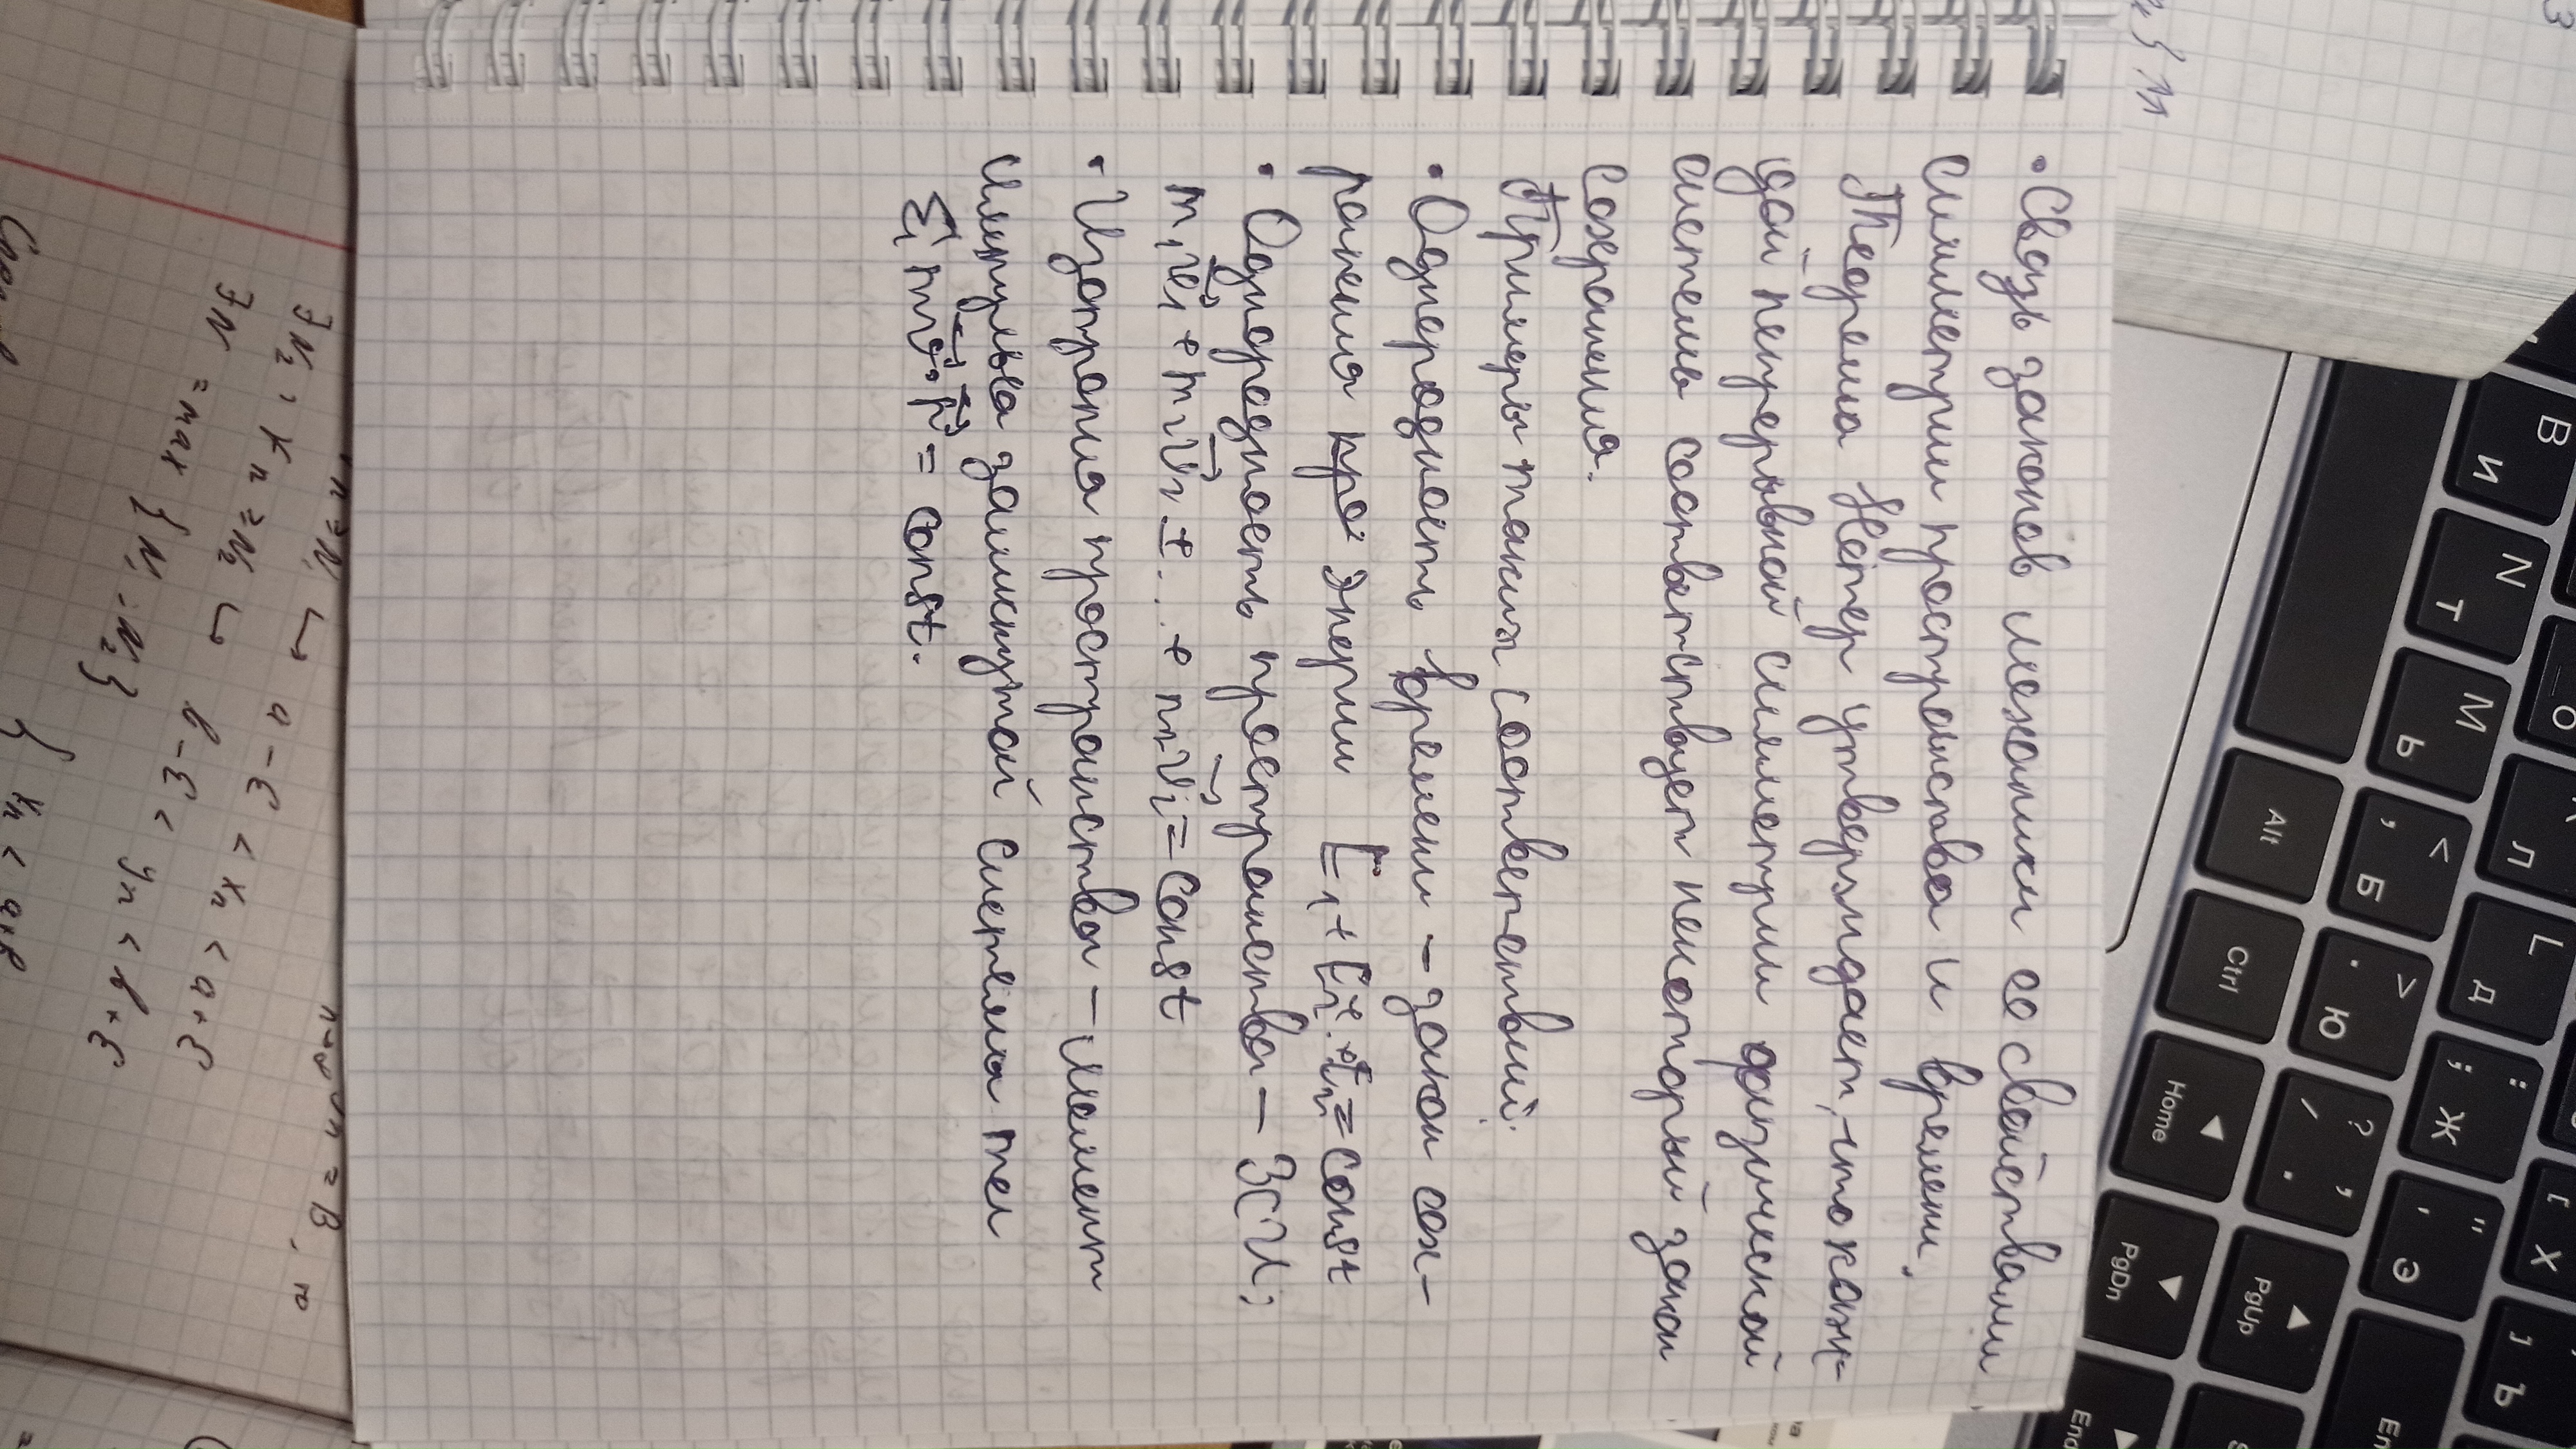 • Связь законов механики со свойствами
симметрии пространства и времени.
Теорема Нётер утверждает, что каж-
дой непрерывной симметрии физической
системы соответствует некоторый закон
сохранения.
Примеры таких соответствий:
• Однородность времени – закон сох-
ранения про энергии E₁ + E₂ + ... + Eₙ = const
• Однородность пространства – ЗСИ;
m₁v⃗₁ + m₂v⃗₂ + ... + mᵢv⃗ᵢ = const
• Изотропия пространства – момент
импульса замкнутой система тел
Σ mv⃗·r⃗ = const.
n ≥ N₁ ↪ a - ε < xₙ < a + ε
∃ N₂, ∀ n ≥ N₂ ↪ b - ε < yₙ < b + ε
∃ N = max { N₁; N₂ }
В И
N Т
M Ь
< , Б
> . Ю
? / , .
Л
L Д
: ; Ж
" ' Э
[ Х
] Ъ
Alt
Ctrl
Home
PgUp
PgDn
End